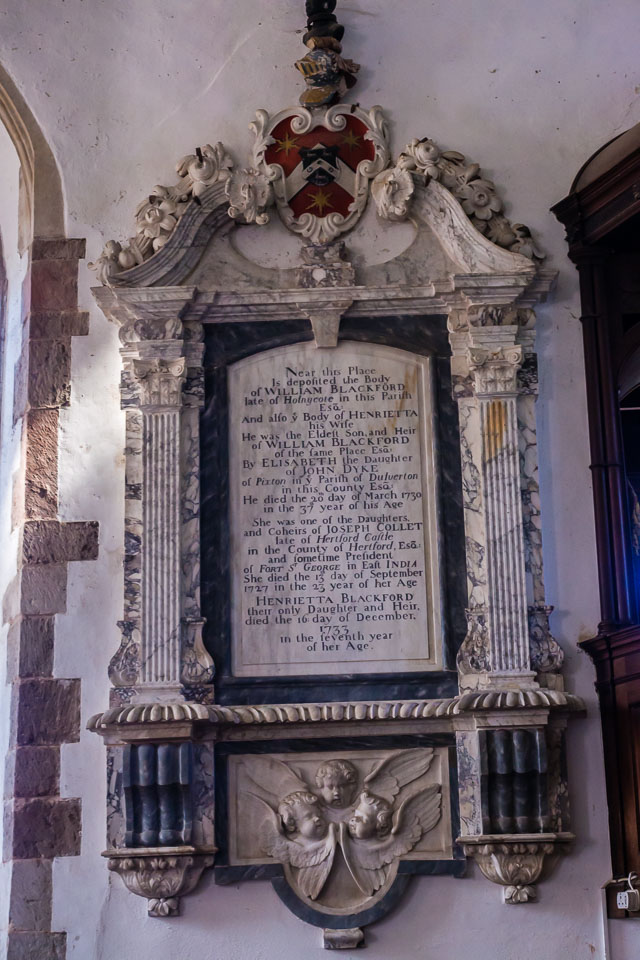 Near this Place
Is deposited the Body
of WILLIAM BLACKFORD
late of Holnycote in this Parish
Esq.:
And also ẏ Body of HENRIETTA
his Wife
He was the Eldest Son, and Heir
of WILLIAM BLACKFORD
of the same Place Esq.:
By ELISABETH the Daughter
of JOHN DYKE
of Pixton in ẏ Parish of Dulverton
in this County Esq.:
He died the 20 day of March 1730
in the 37 year of his Age
She was one of the Daughters,
and Coheirs of JOSEPH COLLET
late of Hertford Castle
in the County of Hertford, Esq.:
and sometime President
of FORT S.T GEORGE in East INDIA
She died the 13 day of September
1727 in the 23 year of her Age
HENRIETTA BLACKFORD
their only Daughter and Heir,
died the 16 day of December,
1733
in the seventh year
of her Age.